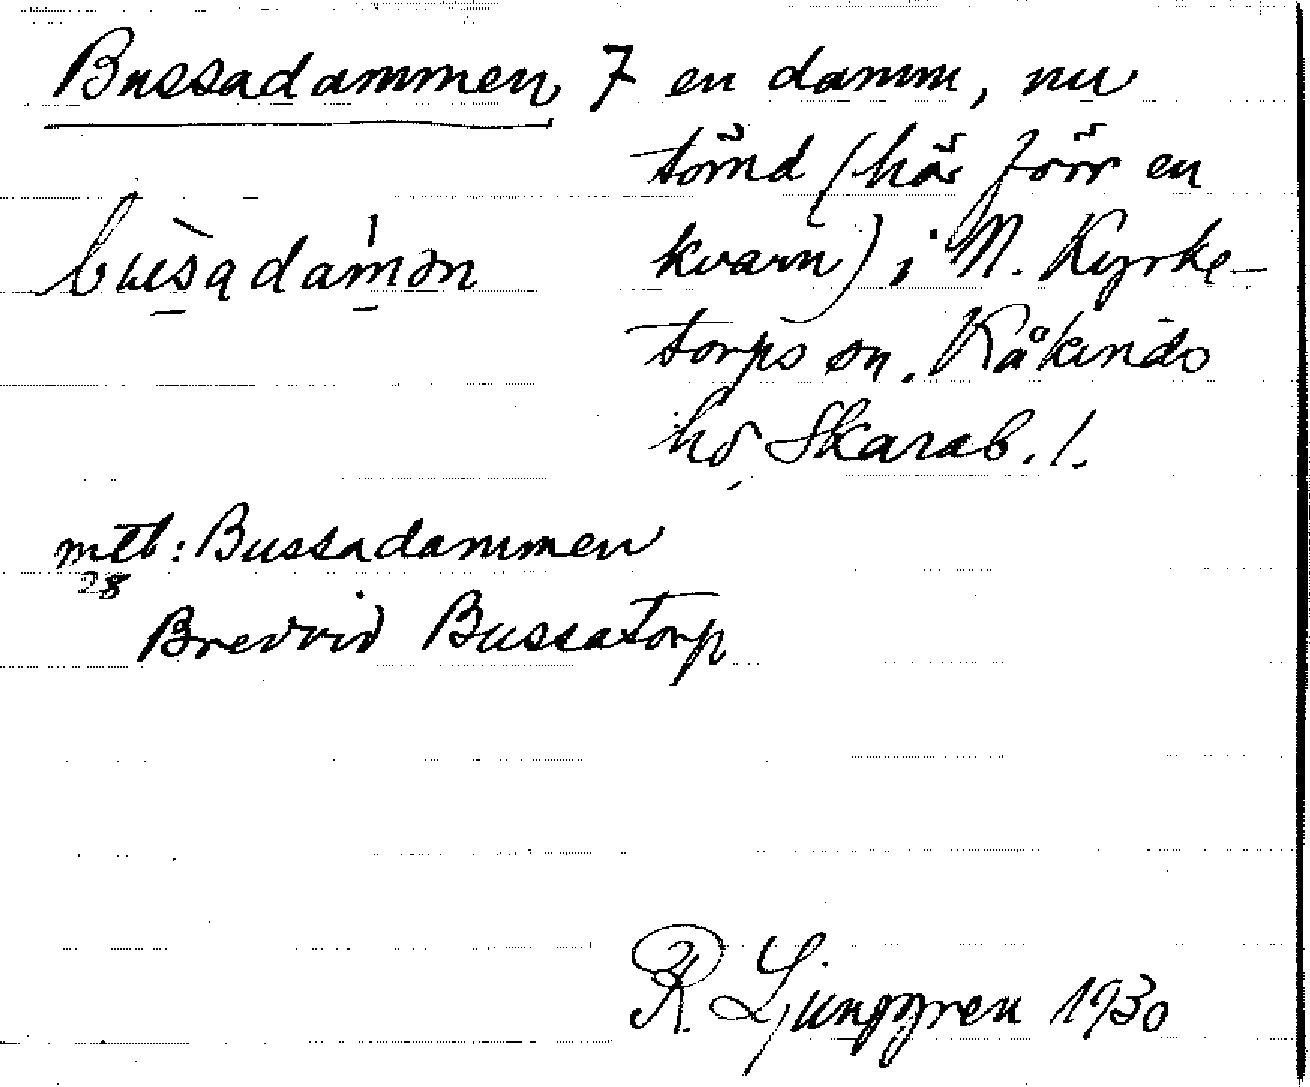 Bussadammen 7 en damm, nu
tömd (här förr en
kvarn) i N. Kyrke-
torps sn. Kåkinds
hd, Skarab. l.
bu̠sadam̠ən
mtb: Bussadammen
28
Bredvid Bussatorp
R. Ljunggren 1930